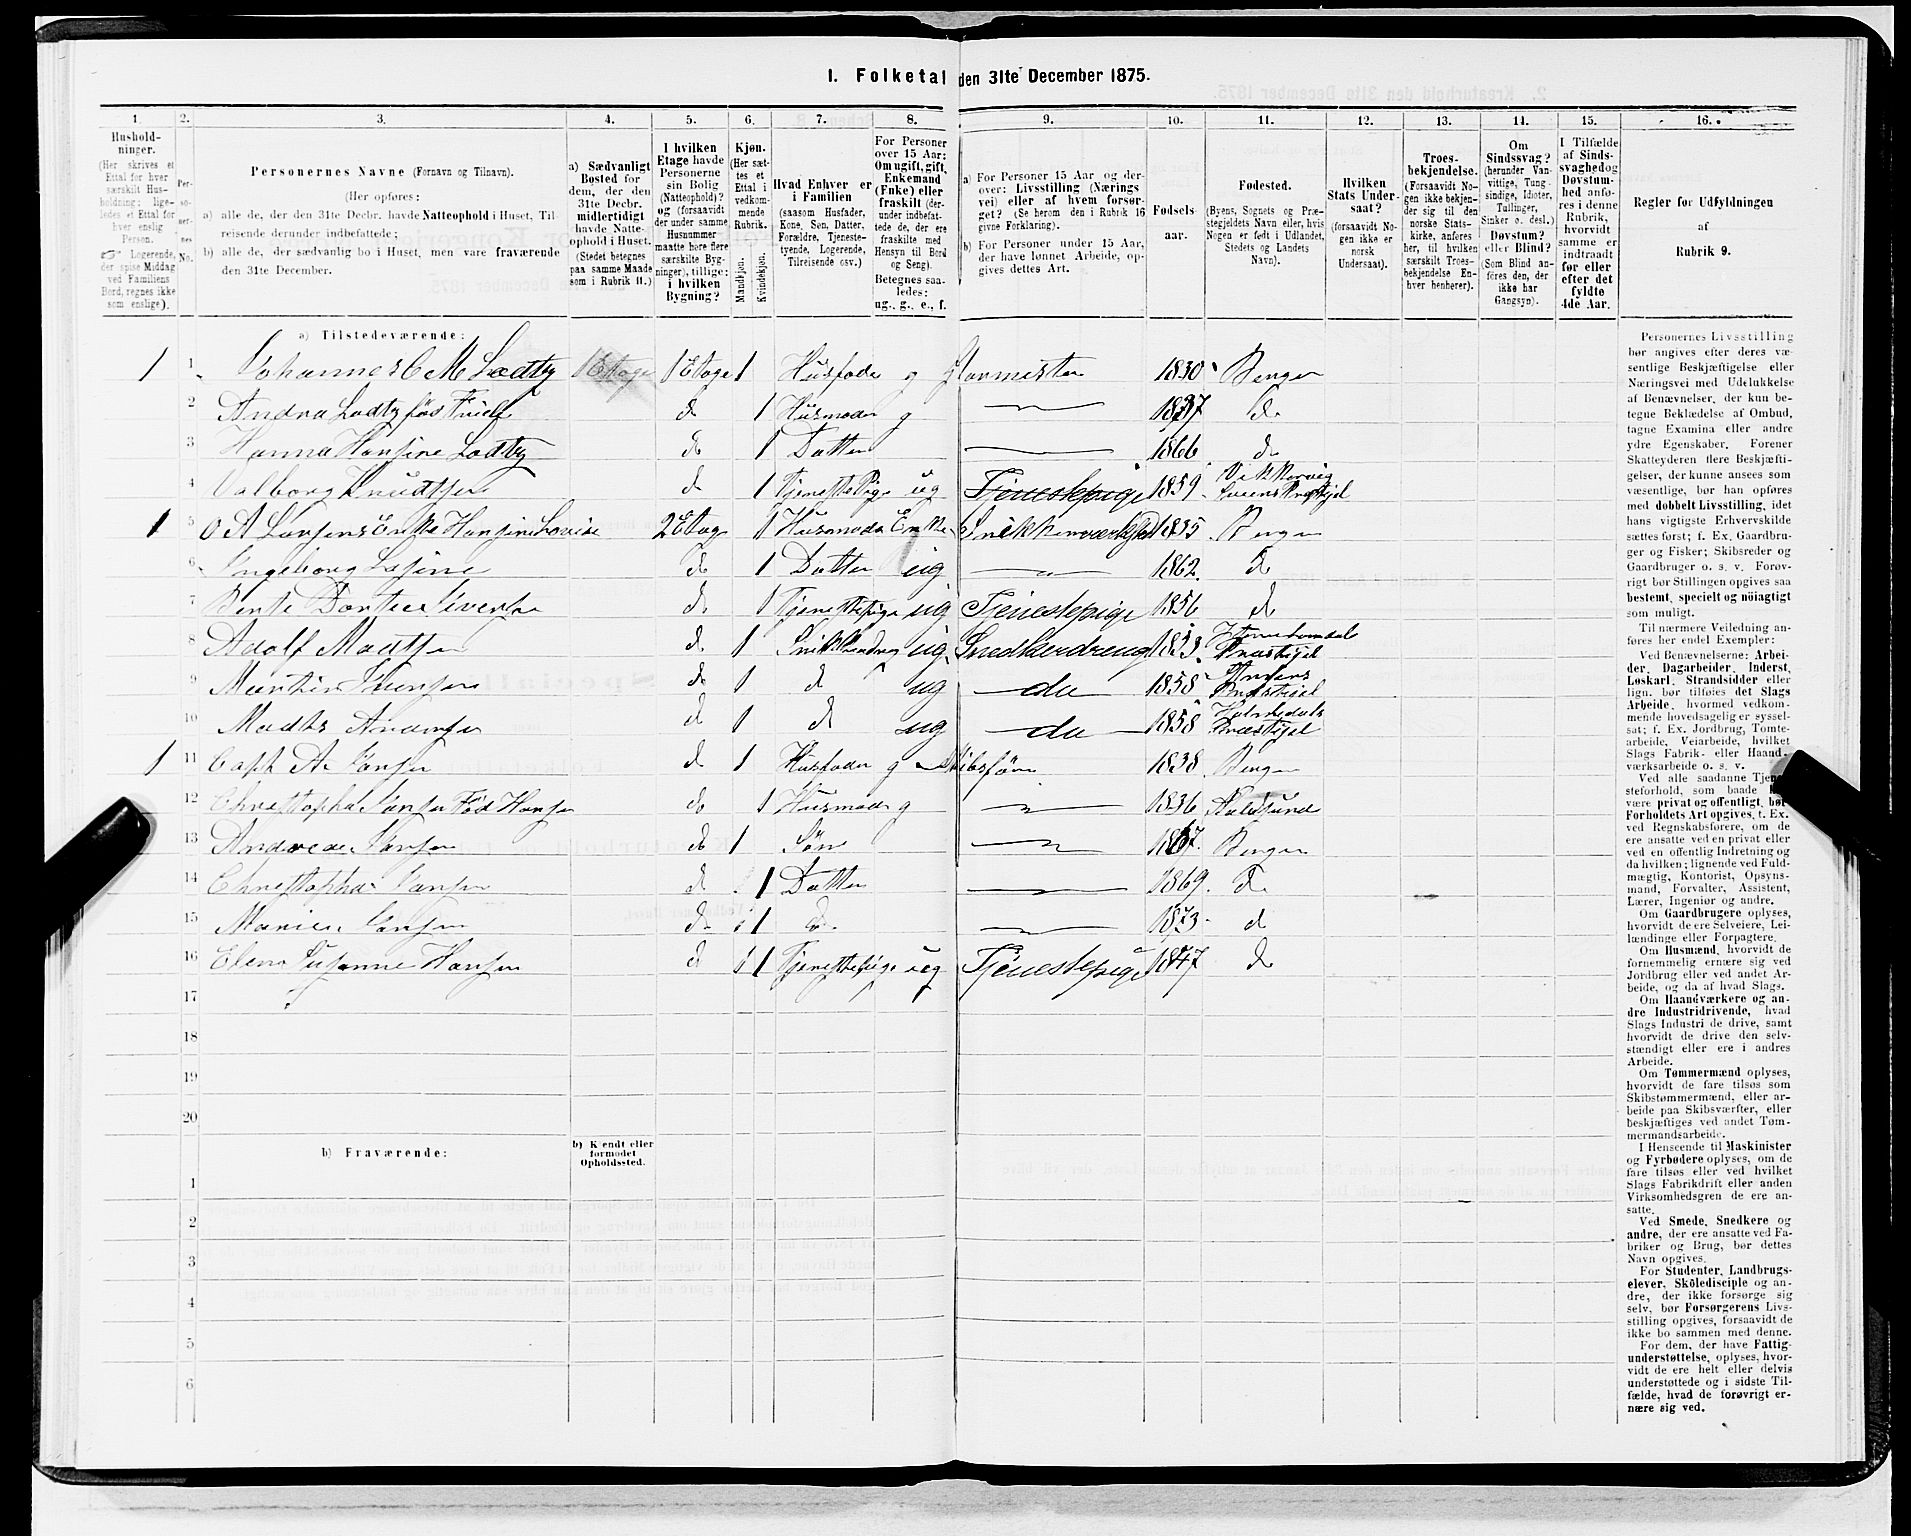 1. Folketal den 31te December 1875.
1. 2. 3. 4. 5. 6. 7. 8. 9. 10. 11. 12. 13. 14. 15. 16.
Hushold-
ninger.
(Her skrives et
Ettal for hver
særskilt Hus-
holdning; lige-
ledes et Ettal for
hver enslig
Person.
☞ Logerende,
der spise Middag
ved Familiens
Bord, regnes ikke
som enslige).
Per-
so-
ner-
nes
No.
Personernes Navne (Fornavn og Tilnavn).
(Her opføres:
a) alle de, der den 31te Decbr. havde Natteophold i Huset, Til-
reisende derunder indbefattede;
b) alle de, der sædvanlig bo i Huset, men vare fraværende
den 31te December.
a) Sædvanligt
Bosted for
dem, der den
31te Decbr.
midlertidigt
havde Natte-
ophold i Huset.
(Stedet betegnes
paa samme Maade
som i Rubrik 11.)
I hvilken
Etage havde
Personerne
sin Bolig
(Natteophold)?
og (forsaavidt
der under samme
Husnummer
maatte høre flere
særskilte Byg-
ninger), tillige:
i hvilken
Bygning?
Kjøn.
(Her sæt-
tes et
Ettal i
vedkom-
mende
Rubrik.
Mandkjøn.
Kvindekjøn.
Hvad Enhver er
i Familien
(saasom Husfader,
Kone, Søn, Datter,
Forældre, Tjeneste-
tyende, Logerende,
Tilreisende osv.)
For Personer
over 15 Aar:
Om ugift, gift,
Enkemand
(Enke) eller
fraskilt (der-
under indbefat-
tede de, der ere
fraskilte med
Hensyn til Bord
og Seng).
Betegnes saa-
ledes:
ug., g., e., f.
a) For Personer 15 Aar og der-
over: Livsstilling (Nærings
vei) eller af hvem forsør-
get? (Se herom den i Rubrik 16
givne Forklaring).
b) For Personer under 15 Aar,
der have lønnet Arbeide, op-
gives dettes Art.
Fødsels-
aar.
Fødested.
(Byens, Sognets og Præ-
stegjeldets Navn eller, hvis
Nogen er født i Udlandet,
Stedets og Landets
Navn).
Hvilken
Stats Under-
saat?
(forsaavidt No-
gen ikke er
norsk
Undersaat).
Troes-
bekjendelse.
(Forsaavidt No-
gen ikke bekjen-
der sig til den
norske Stats-
kirke, anføres
her, til hvilken
særskilt Troes-
bekjendelse En-
hver henhører).
Om
Sindssvag?
(herunder Van-
vittige, Tung-
sindige, Idioter,
Tullinger,
Sinker o. desl.)
Døvstum?
eller Blind?
(Som Blind an-
føres den, der
ikke har
Gangsyn).
I Tilfælde
af Sinds-
svaghed og
Døvstum-
hed anfø-
res i denne
Rubrik,
hvorvidt
samme er
indtraadt
før eller
efter det
fyldte
4de Aar.
Regler for Udfyldningen
af
Rubrik 9.
a) Tilstedeværende:
1 1 Johannes C M Lædty 1 Etage 1 Etage 1 Husfader g Glarmester 1830 Bergen
2 Andrea Lædty d 1 Husmoder g 1837 d
3 Hanna Hansine Lædty d 1 Datter 1866 d
4 Valborg Knudtsen d 1 Tjenestepige ug Tjenestepige 1859
1 5 O A Larsens Enke Hansine Lovise 2 Etage 1 Husmoder Enke 1835 Bergen
6 Ingeborg d 1 Datter ug 1862 d
7 Bente Iversen d 1 Tjenestepige ug Tjenestepige 1856 d
8 Adolf Madtsen d 1 ug Snedkerdreng 1853 Præstgjel
9 d 1 d ug do 1858 Præstgjel
10 Madts Andersen d 1 d ug do 1858 Præstgjel
1 11 Capt A Jansen d 1 Husfader g Skibsfører 1838 Bergen
12 Christopha Jansen Fød Hansen d 1 Husmoder g 1836 Aalesund
13 Andreas Jansen d 1 Søn 1867 Bergen
14 Christopha Jansen d 1 Datter 1869 d
15 Marie Jansen d 1 d 1873 d
16 Elen Susanne Hansen d 1 Tjenestepige ug Tjenestepige 1847 d
17
18
19
20
b) Fraværende:
b) Kjendt eller
formodet
Opholdssted.
1
2
3
4
5
6
Personernes Livsstilling
bør angives efter deres væ-
sentlige Beskjæftigelse eller
Næringsvei med Udelukkelse
af Benævnelser, der kun be-
tegne Beklædelse af Ombud,
tagne Examina eller andre
ydre Egenskaber. Forener
Skatteyderen flere Beskjæfti-
gelser, der kunne ansees som
væsentlige, bør han opføres
med dobbelt Livsstilling, idet
hans vigtigste Erhvervskilde
sættes først; f. Ex. Gaardbru-
ger og Fisker; Skibsreder og
Gaardbruger o. s. v. Forøv-
rigt bør Stillingen opgives saa
bestemt, specielt og nöiagtigt
som muligt.
Til nærmere Veiledning an-
føres her endel Exempler:
Ved Benævnelserne: Arbei-
der, Dagarbeider, Inderst,
Løskarl, Strandsidder eller
lign. bør tilføies det Slags
Arbeide, hvormed vedkom-
mende hovedsagelig er syssel-
sat; f. Ex. Jordbrug, Tomte-
arbeide, Veiarbeide, hvilket
Slags Fabrik- eller Haand-
værksarbeide o. s. v.
Ved alle saadanne Tjene-
steforhold, som baade kan
være privat og offentligt, bør
Forholdets Art opgives, t. Ex.
ved Regnskabsførere, om de
ere ansatte ved en privat eller
ved en offentlig Indretning og
da hvilken; lignende ved Fuld-
mægtig, Kontorist, Opsyns-
mand, Forvalter, Assistent,
Lærer, Ingeniør og andre.
Om Gaardbrugere oplyses,
hvorvidt de ere Selveiere, Lei-
lændinge eller Forpagtere.
Om Husmænd, hvorvidt de
fornemmelig ernære sig ved
Jordbrug eller ved andet Ar-
beide, og da af hvad Slags.
Om Haandværkere og an-
dre Industridrivende, hvad
Slags Industri de drive, samt
hvorvidt de drive den selv-
stændigt eller ere i andres
Arbeide.
Om Tømmermænd oplyses,
hvorvidt de fare tilsøs som
Skibstømmermænd, eller ar-
beide paa Skibsværfter, eller
beskjæftiges ved andet Tøm-
mermandsarbeide.
I Henseende til Maskinister
og Fyrbødere oplyses, om de
fare tilsøs eller ved hvilket
Slags Fabrikdrift eller anden
Virksomhedsgren de ere an-
satte.
Ved Smede, Snedkere og
andre, der ere ansatte ved Fa-
briker og Brug, bør dettes
Navn opgives.
For Studenter, Landbrugs-
elever, Skoledisciple og an-
dre, der ikke forsørge sig
selv, bør Forsørgerens Livs-
stilling opgives, forsaavidt de
ikke bo sammen med denne.
For dem, der have Fattig-
understøttelse, oplyses, hvor-
vidt de ere helt eller delvis
understøttede og i sidste Til-
fælde, hvad de forøvrigt er-
nære sig ved.